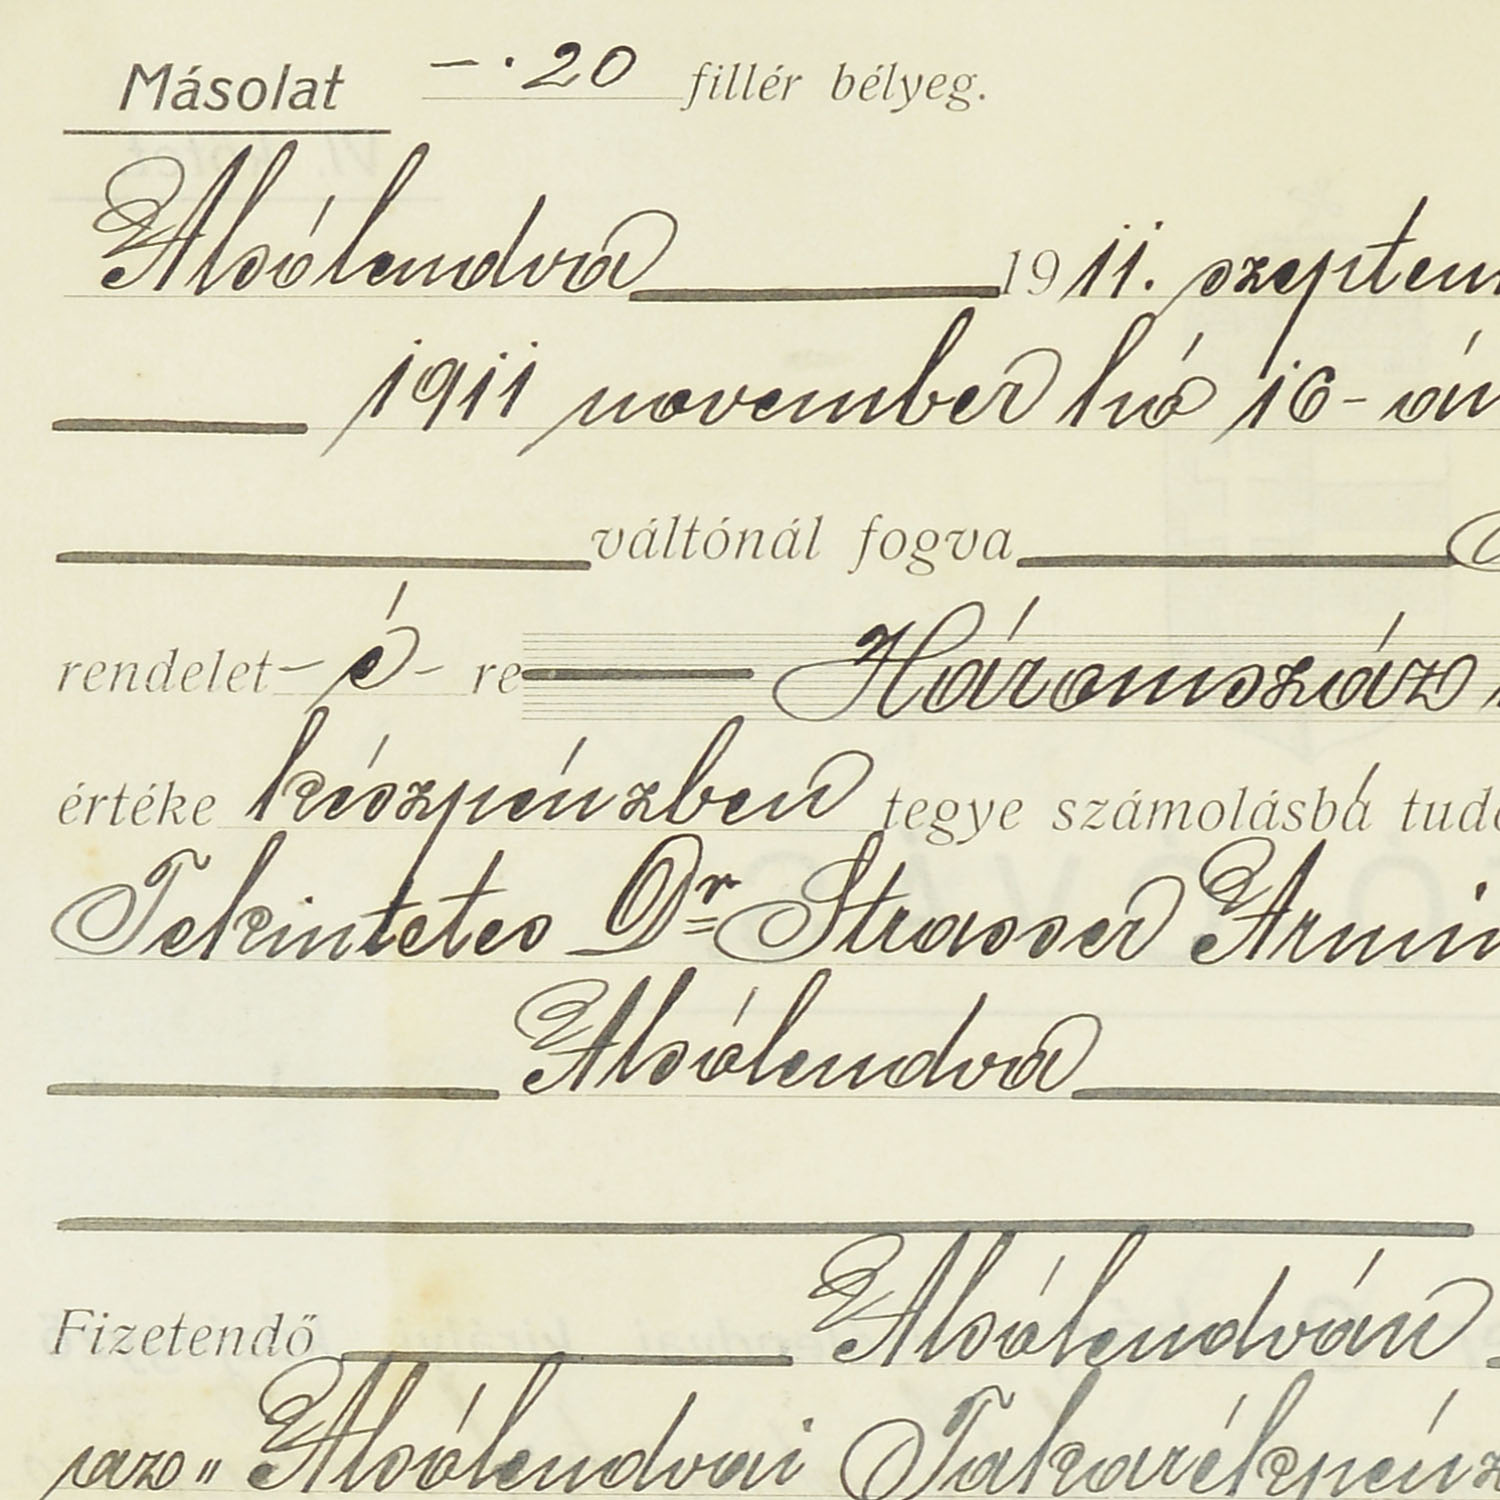 Másolat —·20 fillér bélyeg.
Alsólendva 1911. szeptem
1911 november hó 16-án
váltónál fogva
rendelet-é-re Háromszáz
értéke készpénzben tegye számolásba tudó
Tekintetes Dr Strasser Ármin
Alsólendva
Fizetendő Alsólendván
az „Alsólendvai Takarékpénz